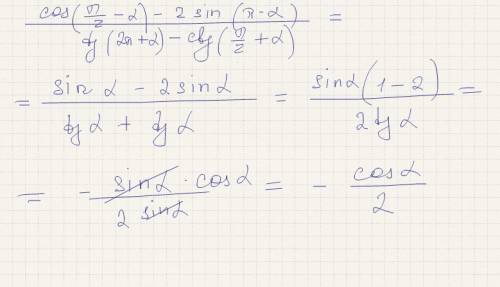 cos(π/2 - α) - 2 sin (π - α) / tg (2π + α) - ctg(π/2 + α) =
= sin α - 2 sin α / tg α + tg α = sin α (1 - 2) / 2 tg α =
= - sin α · cos α / 2 sin α = - cos α / 2